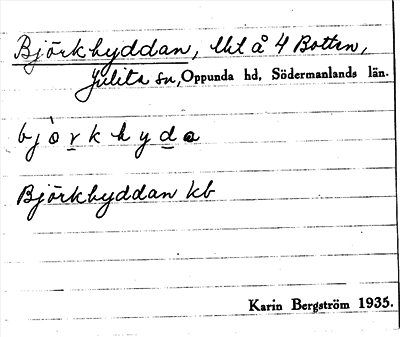 Björkhyddan, lht å 4 Botten,
Julita sn, Oppunda hd, Södermanlands län.
bjòrkhyda
Björkhyddan kb
Karin Bergström 1935.